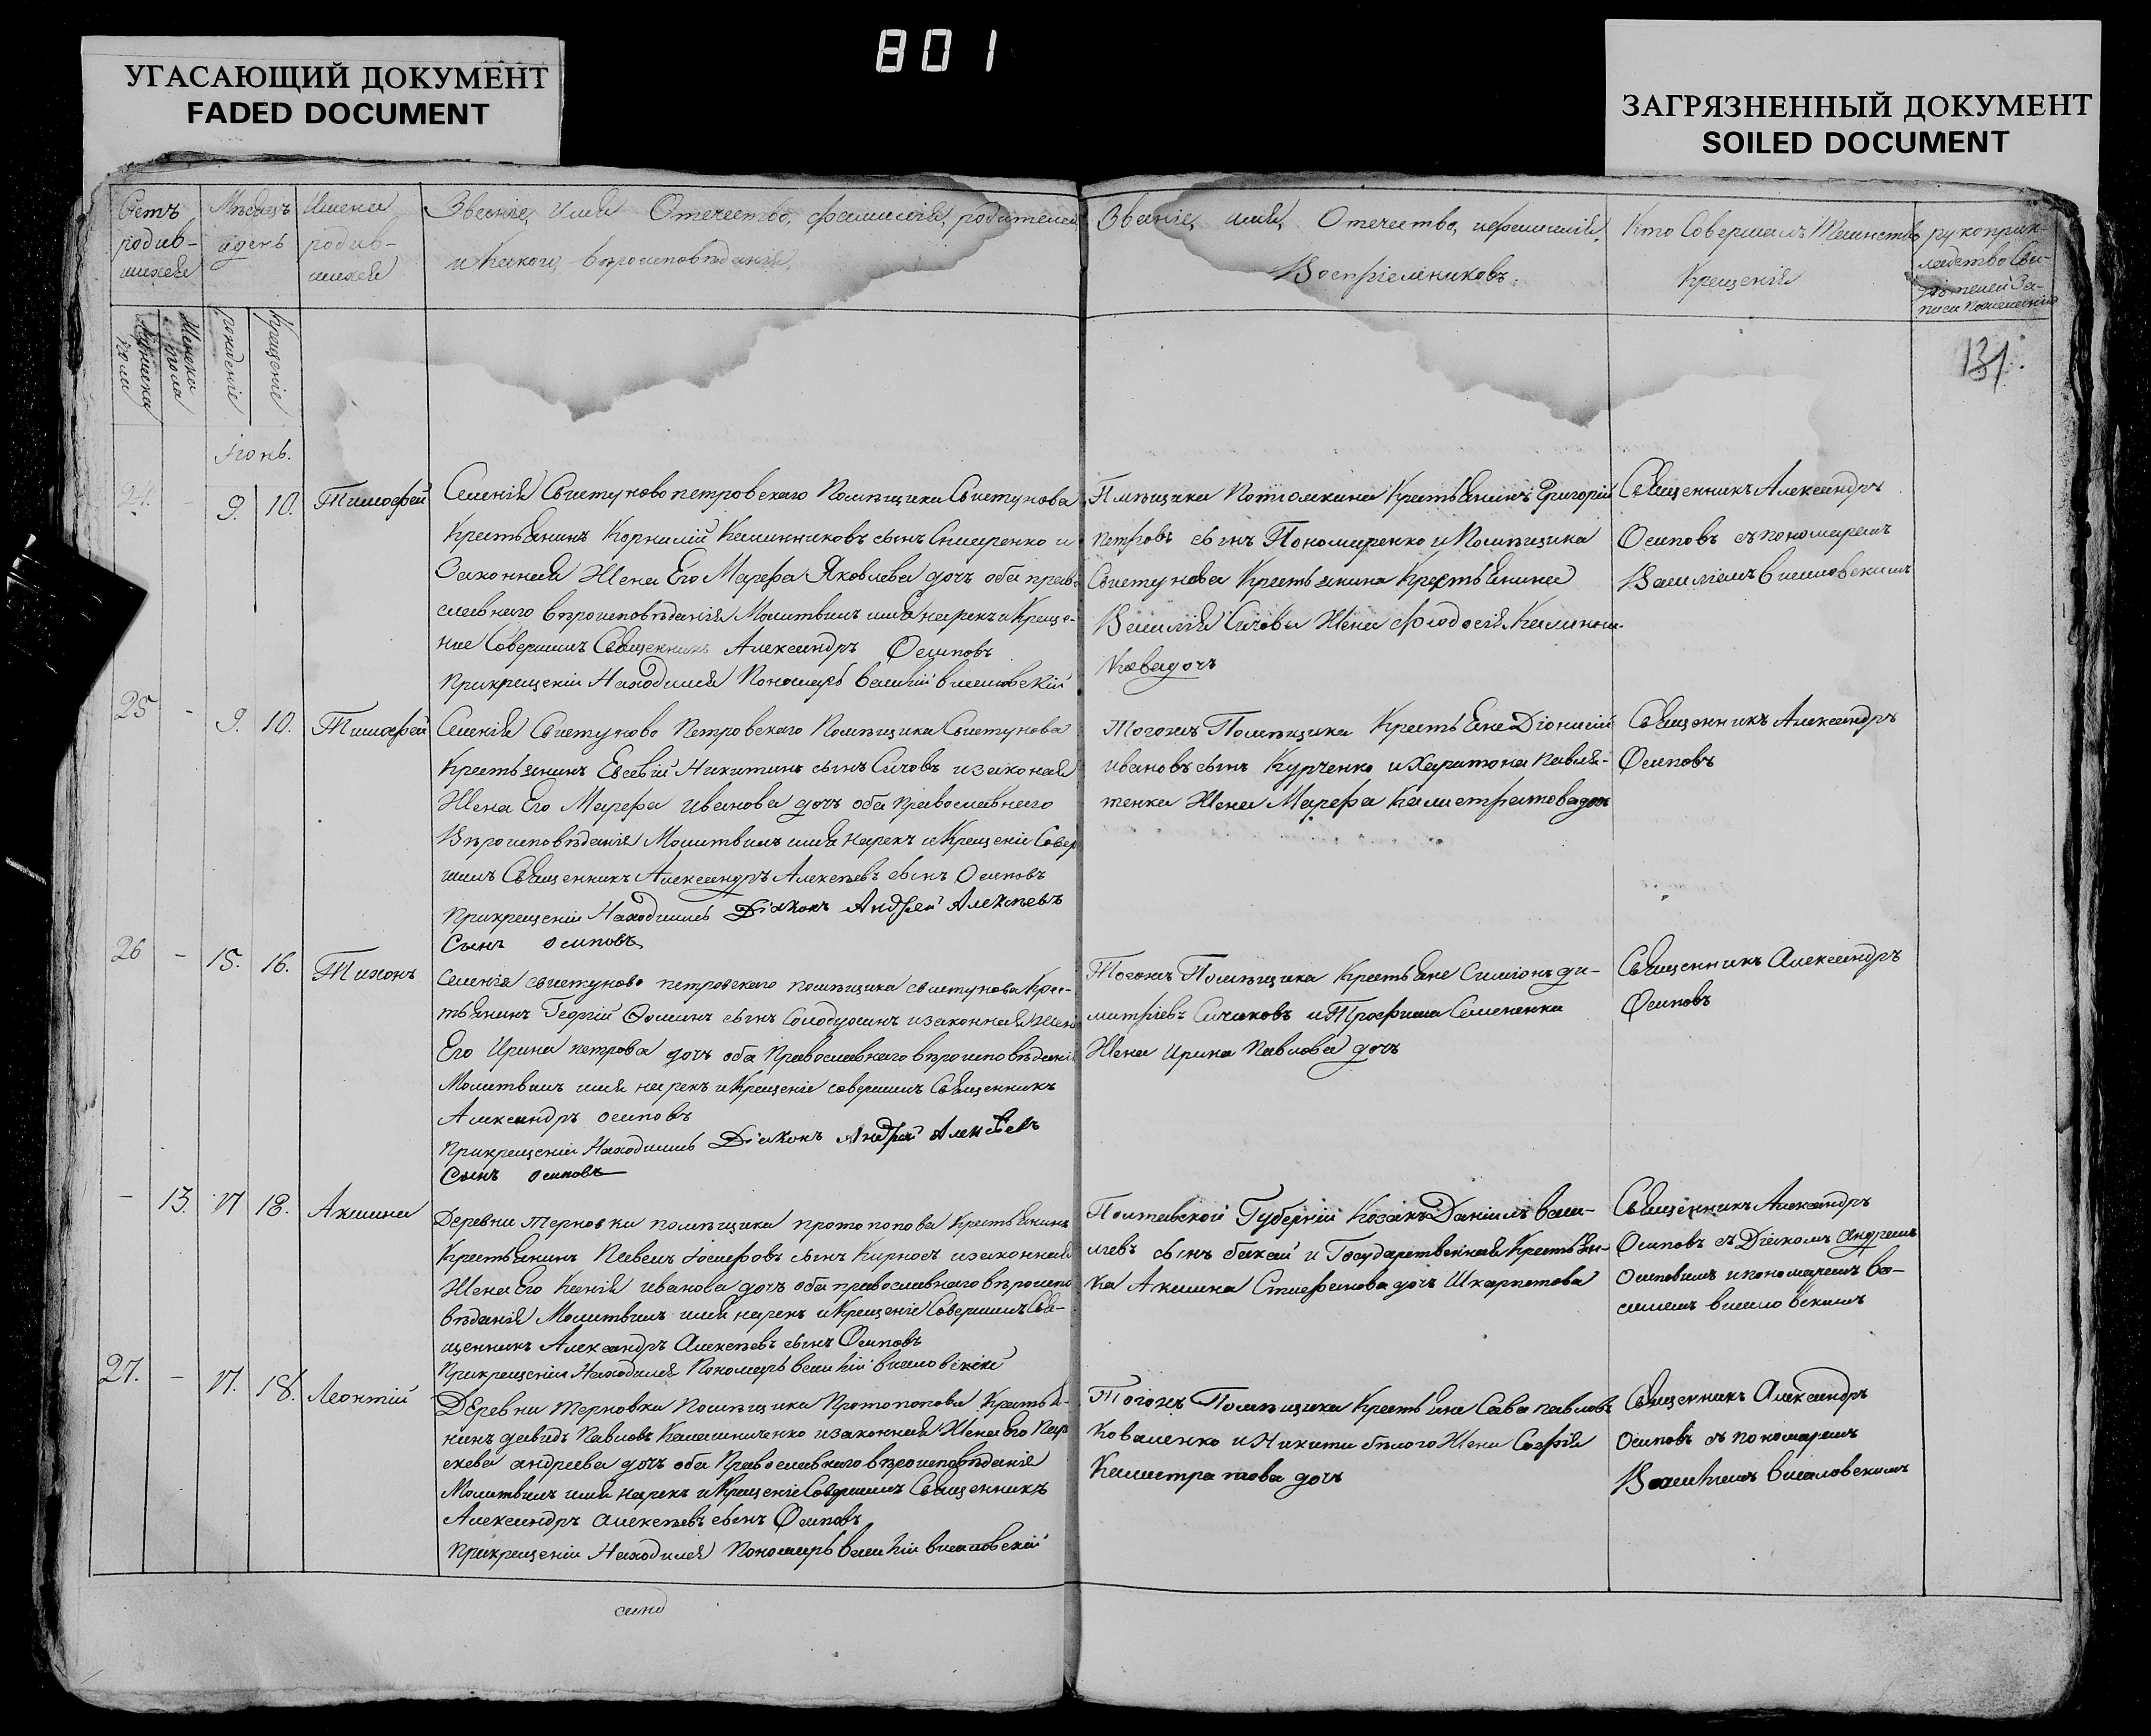 801
УГАСАЮЩИЙ ДОКУМЕНТ
FADED DOCUMENT
ЗАГРЯЗНЕННЫЙ ДОКУМЕНТ
SOILED DOCUMENT
Счетъ родив-шихся
Мѣсяцъ и день
Имена родив-шихся
Званіе, имя Отечество, фамилія, родителей
и Какого, вѣроисповѣданія,
Званіе, имя, Отечество, ифамилія,
Воспріемниковъ.
Кто Совершалъ Таинство
Крещенія
рукоприк-
ладство Сви-
дѣтелей За-
писи Пожеланію
Мужеска пола
Женска пола
рожденіе
Крещеніе
131.
Іюнь.
24. - 9. 10. Тимофей
Селенія Свистуново петровскаго Помѣщика Свистунова
Крестьянинъ Корнилій Калинниковъ сынъ Смиренко и
Законная Жена Его Марефа Яковлева дочъ оба право-
славнаго вѣроисповѣданія Молитвилъ имя нарекъ и Креще-
ніе Совершилъ Священникъ Александръ Осиповъ
Прикрещеніи Находился Пономарь Василій
Помѣщика Потіомкина Крестьянинъ Григорій
петровъ сынъ Пономаренко и Помѣщика
Свистунова Крестьянина Крестьянина
Василія Сичова Жена Фіодосія Калинни-
кова дочъ
Священникъ Александръ
Осиповъ съ пономаремъ
Василіемъ
25 - 9. 10. Тимофей
Селенія Свистуново Петровскаго Помѣщика Свистунова
Крестьянинъ Евсевій Никитинъ сынъ Сичовъ изаконая
Жена Его Марефа Иванова дочъ оба Православнаго
Вѣроисповѣданія Молитвилъ имя нарекъ и Крещеніе Совер
шилъ Священникъ Александръ Алексѣевъ сынъ Осиповъ
Прикрещеніи Находился Діаконъ Андрей Алексѣевъ
Сынъ осиповъ
Тогожъ Помѣщика Крестьяне Діонисій
ивановъ сынъ Курченко и Харитона Павли-
тенка Жена Марефа Калистратова дочъ
Священникъ Александръ
Осиповъ
26 - 15. 16. Тихонъ
Селенія свистуново петровскаго помѣщика свистунова Крес-
тьянинъ Георгій Фоминъ сынъ изаконная Жена
Его Ирина петрова дочъ оба Православнаго вѣроисповѣданія
Молитвилъ имя нарекъ и Крещеніе совершилъ Священникъ
Александръ осиповъ
Прикрещеніи Находился Діаконъ Андрей Алексѣевъ
Сынъ осиповъ
Тогожъ Помѣщика Крестьяне Симіонъ ди-
митріевъ и Трофима Семененка
Жена Ирина Павлова дочъ
Священникъ Александръ
Осиповъ
- 13. 17 18. Акилина
Деревни Терновки помѣщика протопопова Крестьянинъ
Крестьянинъ Павелъ Іосифовъ сынъ Кирносъ изаконная
Жена Его Ксенія иванова дочъ оба православнаго вѣроиспо
вѣданія Молитвилъ имя нарекъ и Крещеніе Совершилъ Свя-
щенникъ Александръ Алексѣевъ сынъ Осиповъ
Прикрещеніи Находился Пономарь
Полтавской Губерніи Козакъ Даніилъ Васи-
лиевъ сынъ бакай и Государственная Крестьян-
ка Акилина Стиефанова дочъ Шкарпетова
Священникъ Александръ
Осиповъ съ Діакономъ Андреемъ
Осиповимъ ипономаремъ Ва-
силиемъ
27. - 17. 18. Леонтій
Деревни Терновки Помѣщика Протопопова Крестья-
нинъ давидъ Павловъ Калашниченко изаконная Жена Его Пара
скева андреева дочъ оба Православнаго вѣроисповѣданія
Молитвилъ имя нарекъ и Крещеніе Совершилъ Священникъ
Александръ Алексѣевъ сынъ Осиповъ
Прикрещеніи Находился Пономарь
Тогожъ Помѣщика Крестьяне Сава павловъ
Коваленко и Никити бѣлого Жена Софія
Калистратова дочъ
Священникъ Александръ
Осиповъ съ пономаремъ